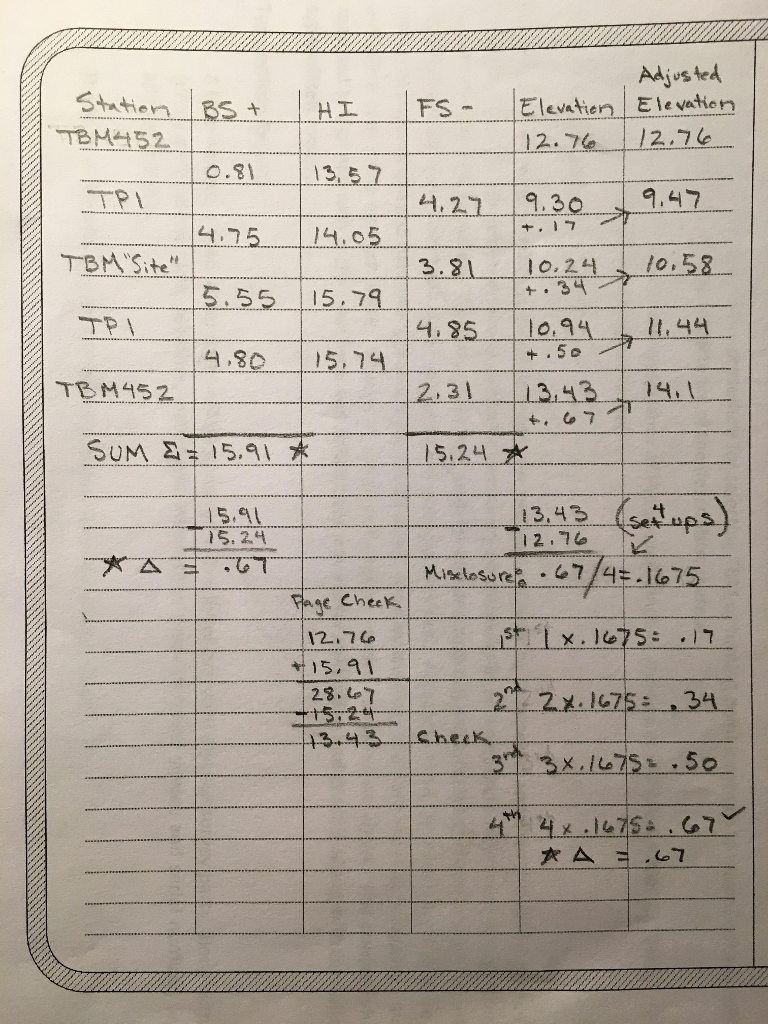 Adjusted
Station BS + HI FS - Elevation Elevation
TBM452 12.76 12.76
0.81 13.57
TP1 4.27 9.30 9.47
+.17
4.75 14.05
TBM "Site" 3.81 10.24 10.58
+.34
5.55 15.79
TP1 4.85 10.94 11.44
+.50
4.80 15.74
TBM452 2.31 13.43 14.1
+.67
SUM Σ = 15.91 ★ 15.24 ★
15.91 13.43 (4 set ups)
- 15.24 - 12.76
★ Δ = .67 Misclosure: .67/4=.1675
Page Check
12.76 1st 1 x .1675= .17
+ 15.91
28.67 2nd 2 x .1675= .34
- 15.24
13.43 Check
3rd 3 x .1675= .50
4th 4 x .1675= .67 ✓
★ Δ = .67